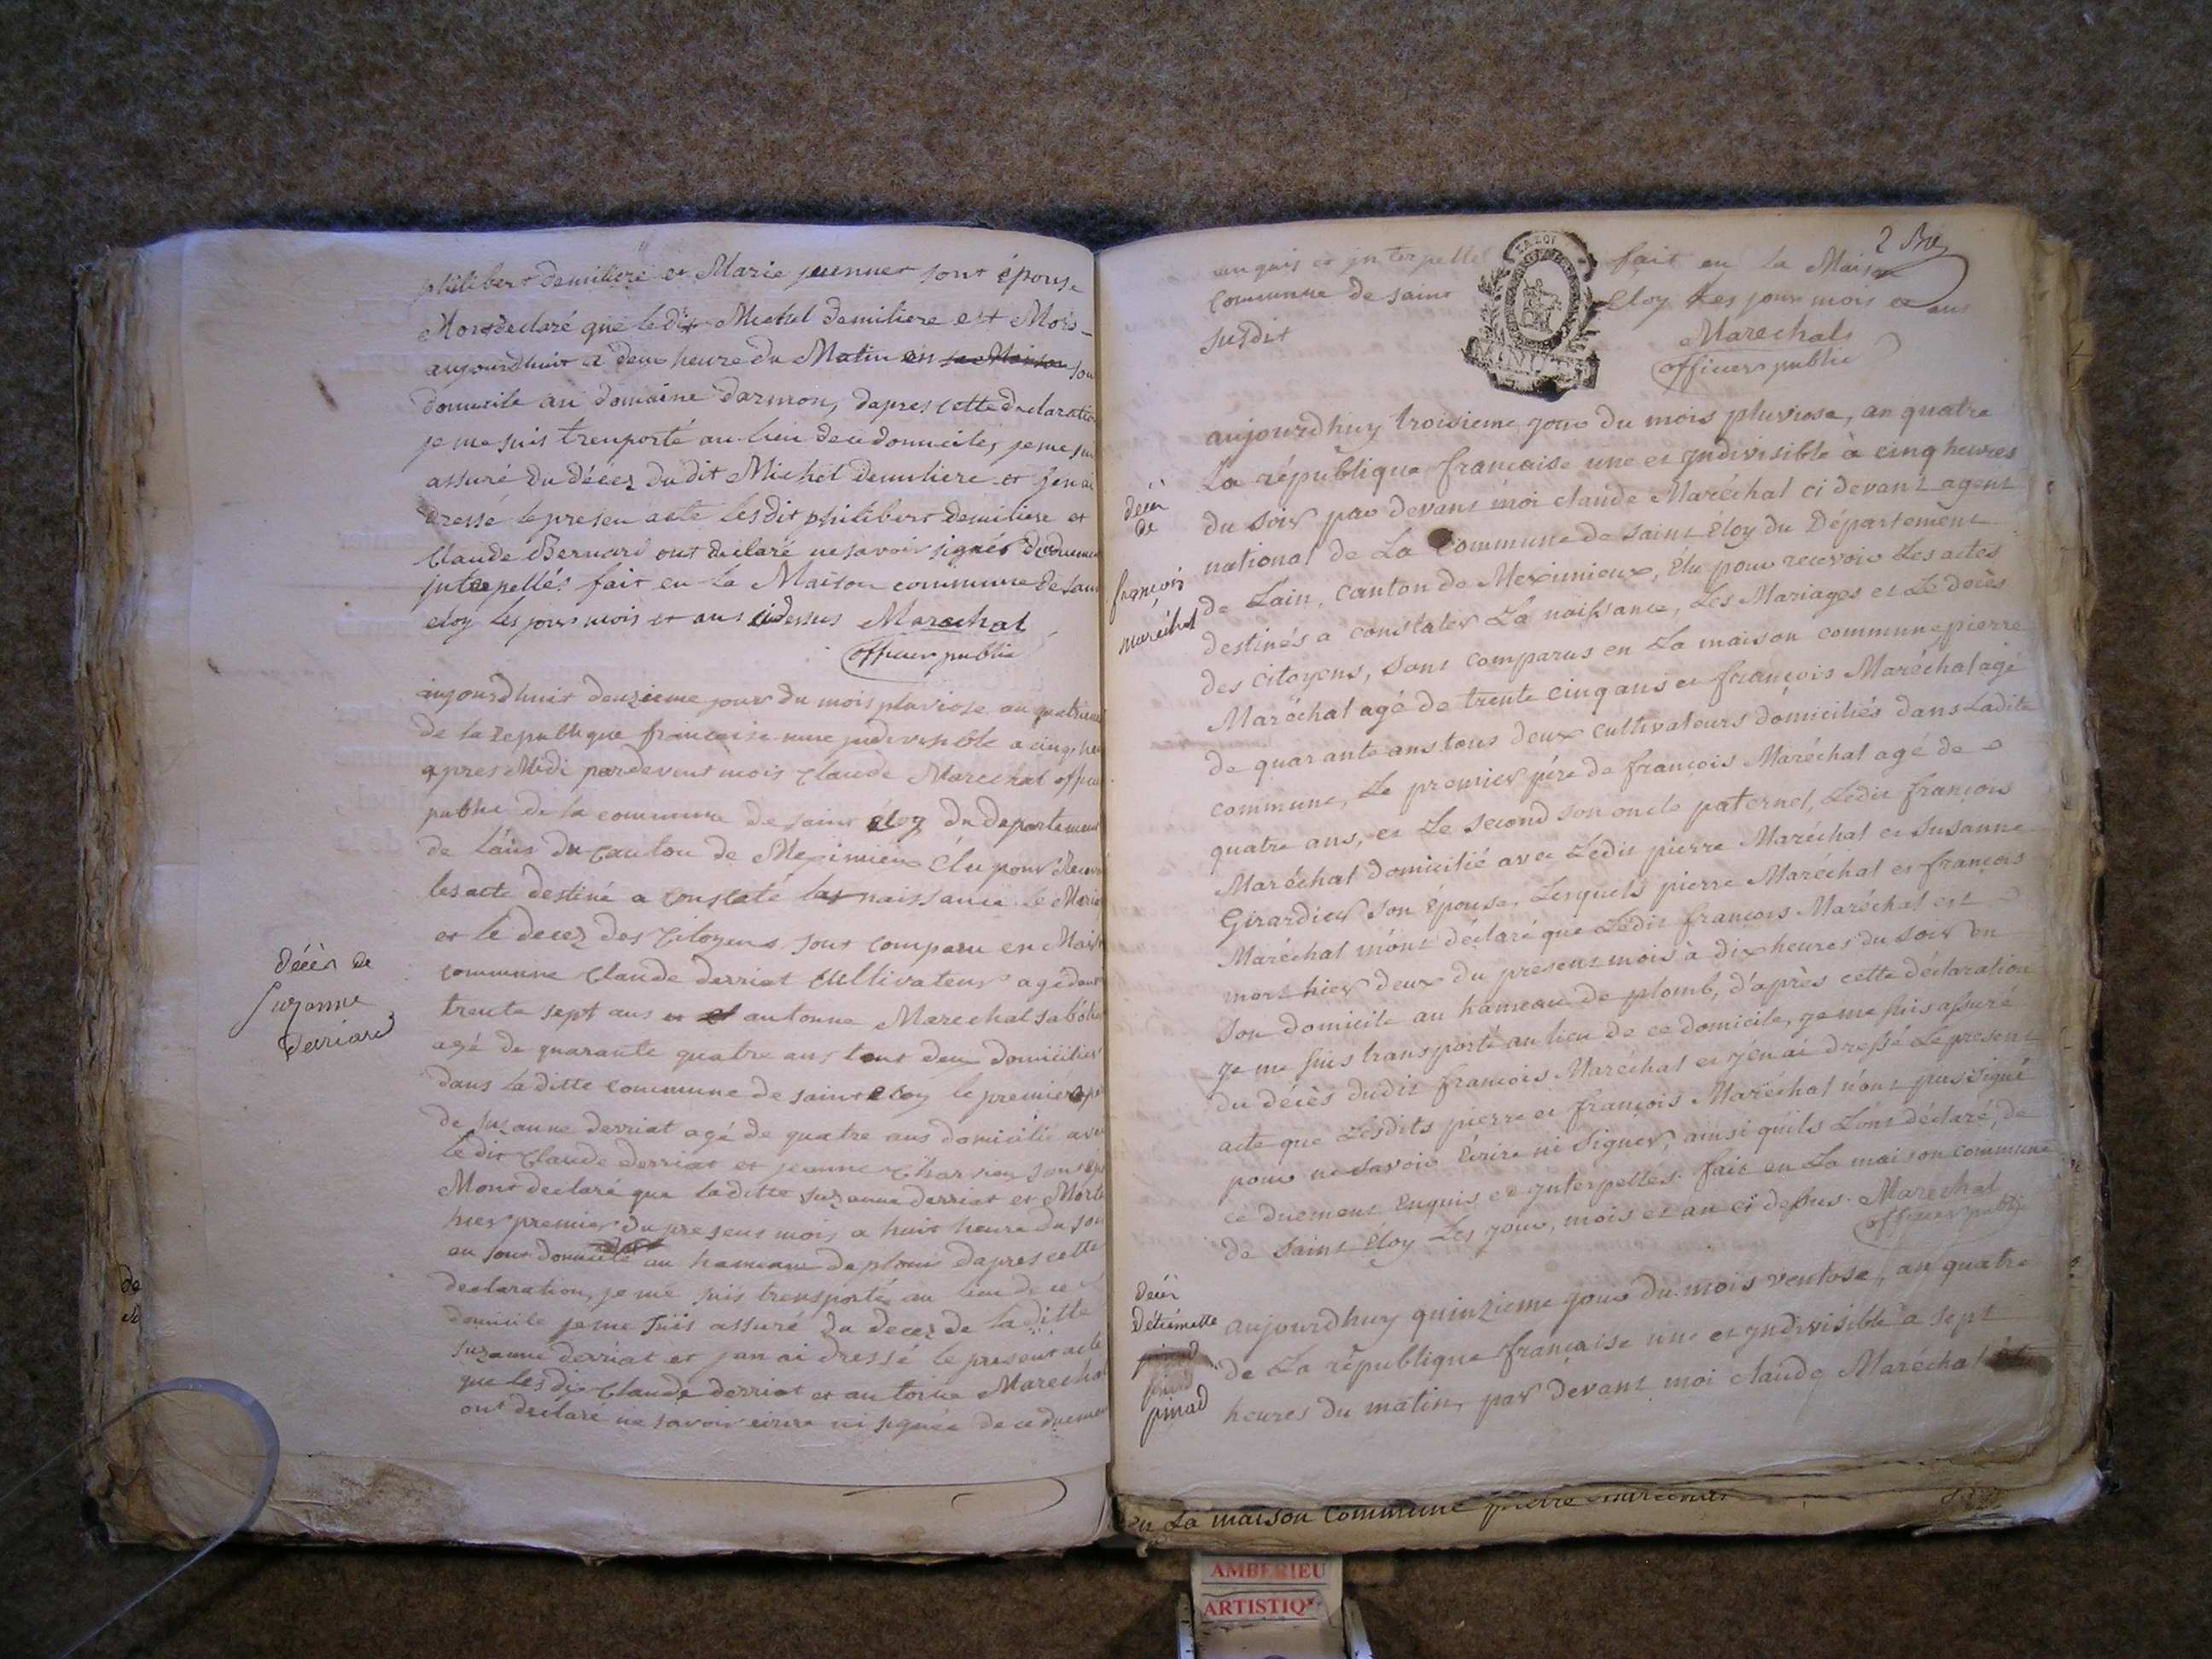 philibert demiliere et Marie jeunnet sont épouse
Mont declaré que le dit Michel demiliere est Mors
aujourdhuit a deux heure du Matin en sa Maison son
domicile au domaine darmon, dapres cette declaration
je me suis trenporté au lieu de ce domicile, je me sui
assuré du décez du dit Michel demiliere et jen ai
dressé le presen acte lesdit philibert demiliere et
Claude Bernard ont declaré ne savoir signér
jnterpellés fait en la Maison commune de Saint
eloy les jour mois et ans cidessus Marechal
officier public
aujourdhuit deuzieme jour du mois pluviose an quatrieme
de la republique francaise une jndivisible a cinq heu
apres Midi pardevent mois Claude Marechal officier
public de la commune de saint éloy du departement
de láin du canton de Meximieux élu pour Recevoir
les acte destiné a constaté las naissance le Maria
et le decez des Citoyens sont comparu en Maison
commune Claude derriat Cultivateur agé dent
trente sept ans et et antoine Marechal
agé de quarante quatre ans tout deux domicilier
dans la ditte commune de saint eloy le premier pe
de suzanne derriat agé de quatre ans domicilié avec
le dit Claude derriat et jeanne son épo
Mont declaré que la ditte suzanne derriat et Morte
hier premier du present mois a huit heure du soir
en sont domicile au hameaux de plom dapres cette
declaration, je me suis trensporté au lieu de ce
domicile je me suis assuré du decez de la ditte
suzanne derriat et jan ai dressé le present acte
que les dit Claude derriat et antoine Marechal
ont declaré ne savoir ecrire ni signée de ce duement
décès de
Suzanne
derriard
2
enquis et jnterpellé fait en la Maison
commune de saint eloy les jour mois et ans
susdit
LA LOI
Marechal
officier public
décès
de
françois
maréchal
aujourdhuy troisieme jour du mois pluviose, an quatre
La république francaise une et jndivisible à cinq heures
du soir par devant moi claude Maréchal ci devant agent
national de La Commune de saint Eloy du Département
de Lain, canton de Meximieux, élu pour recevoir Les actes
destinés a constater La naissance, Les Mariages et Le décès
des citoyens, sont comparus en La maison commune pierre
Maréchal agé de trente cinq ans et françois Maréchal agé
de quarante ans tous deux cultivateurs domiciliés dans Ladite
commune, Le premier pére de françois Maréchal agé de
quatre ans, et Le second son oncle paternel, Ledit françois
Maréchal domicilié avec Ledit pierre Maréchal et susanne
Girardier son Epouse, Lesquels pierre Maréchal et françois
Maréchal m'ont déclaré que Ledit françois Maréchal est
mort hier deux du present mois à dix heures du soir en
son domicile au hameau de plomb, d'après cette déclaration
je me suis transporté au lieu de ce domicile, je me suis assuré
du décès dudit françois Maréchal et j'en ai dressé Le present
acte que Lesdits pierre et françois Maréchal n'ont pas signé
pour ne savoir Ecrire ni signer, ainsi qu'ils L'ont déclaré, de
ce duement Enquis et jnterpellés. fait en La maison commune
de saint Eloy Les jour, mois et an ci dessus. Marechal
officier public
décès
détiennette
pinad
aujourdhuy quinzieme jour du mois ventose, an quatre
de La république française une et jndivisible à sept
heures du matin, par devant moi claude Maréchal
en La maison commune pierre
AMBERIEU
ARTISTIQ